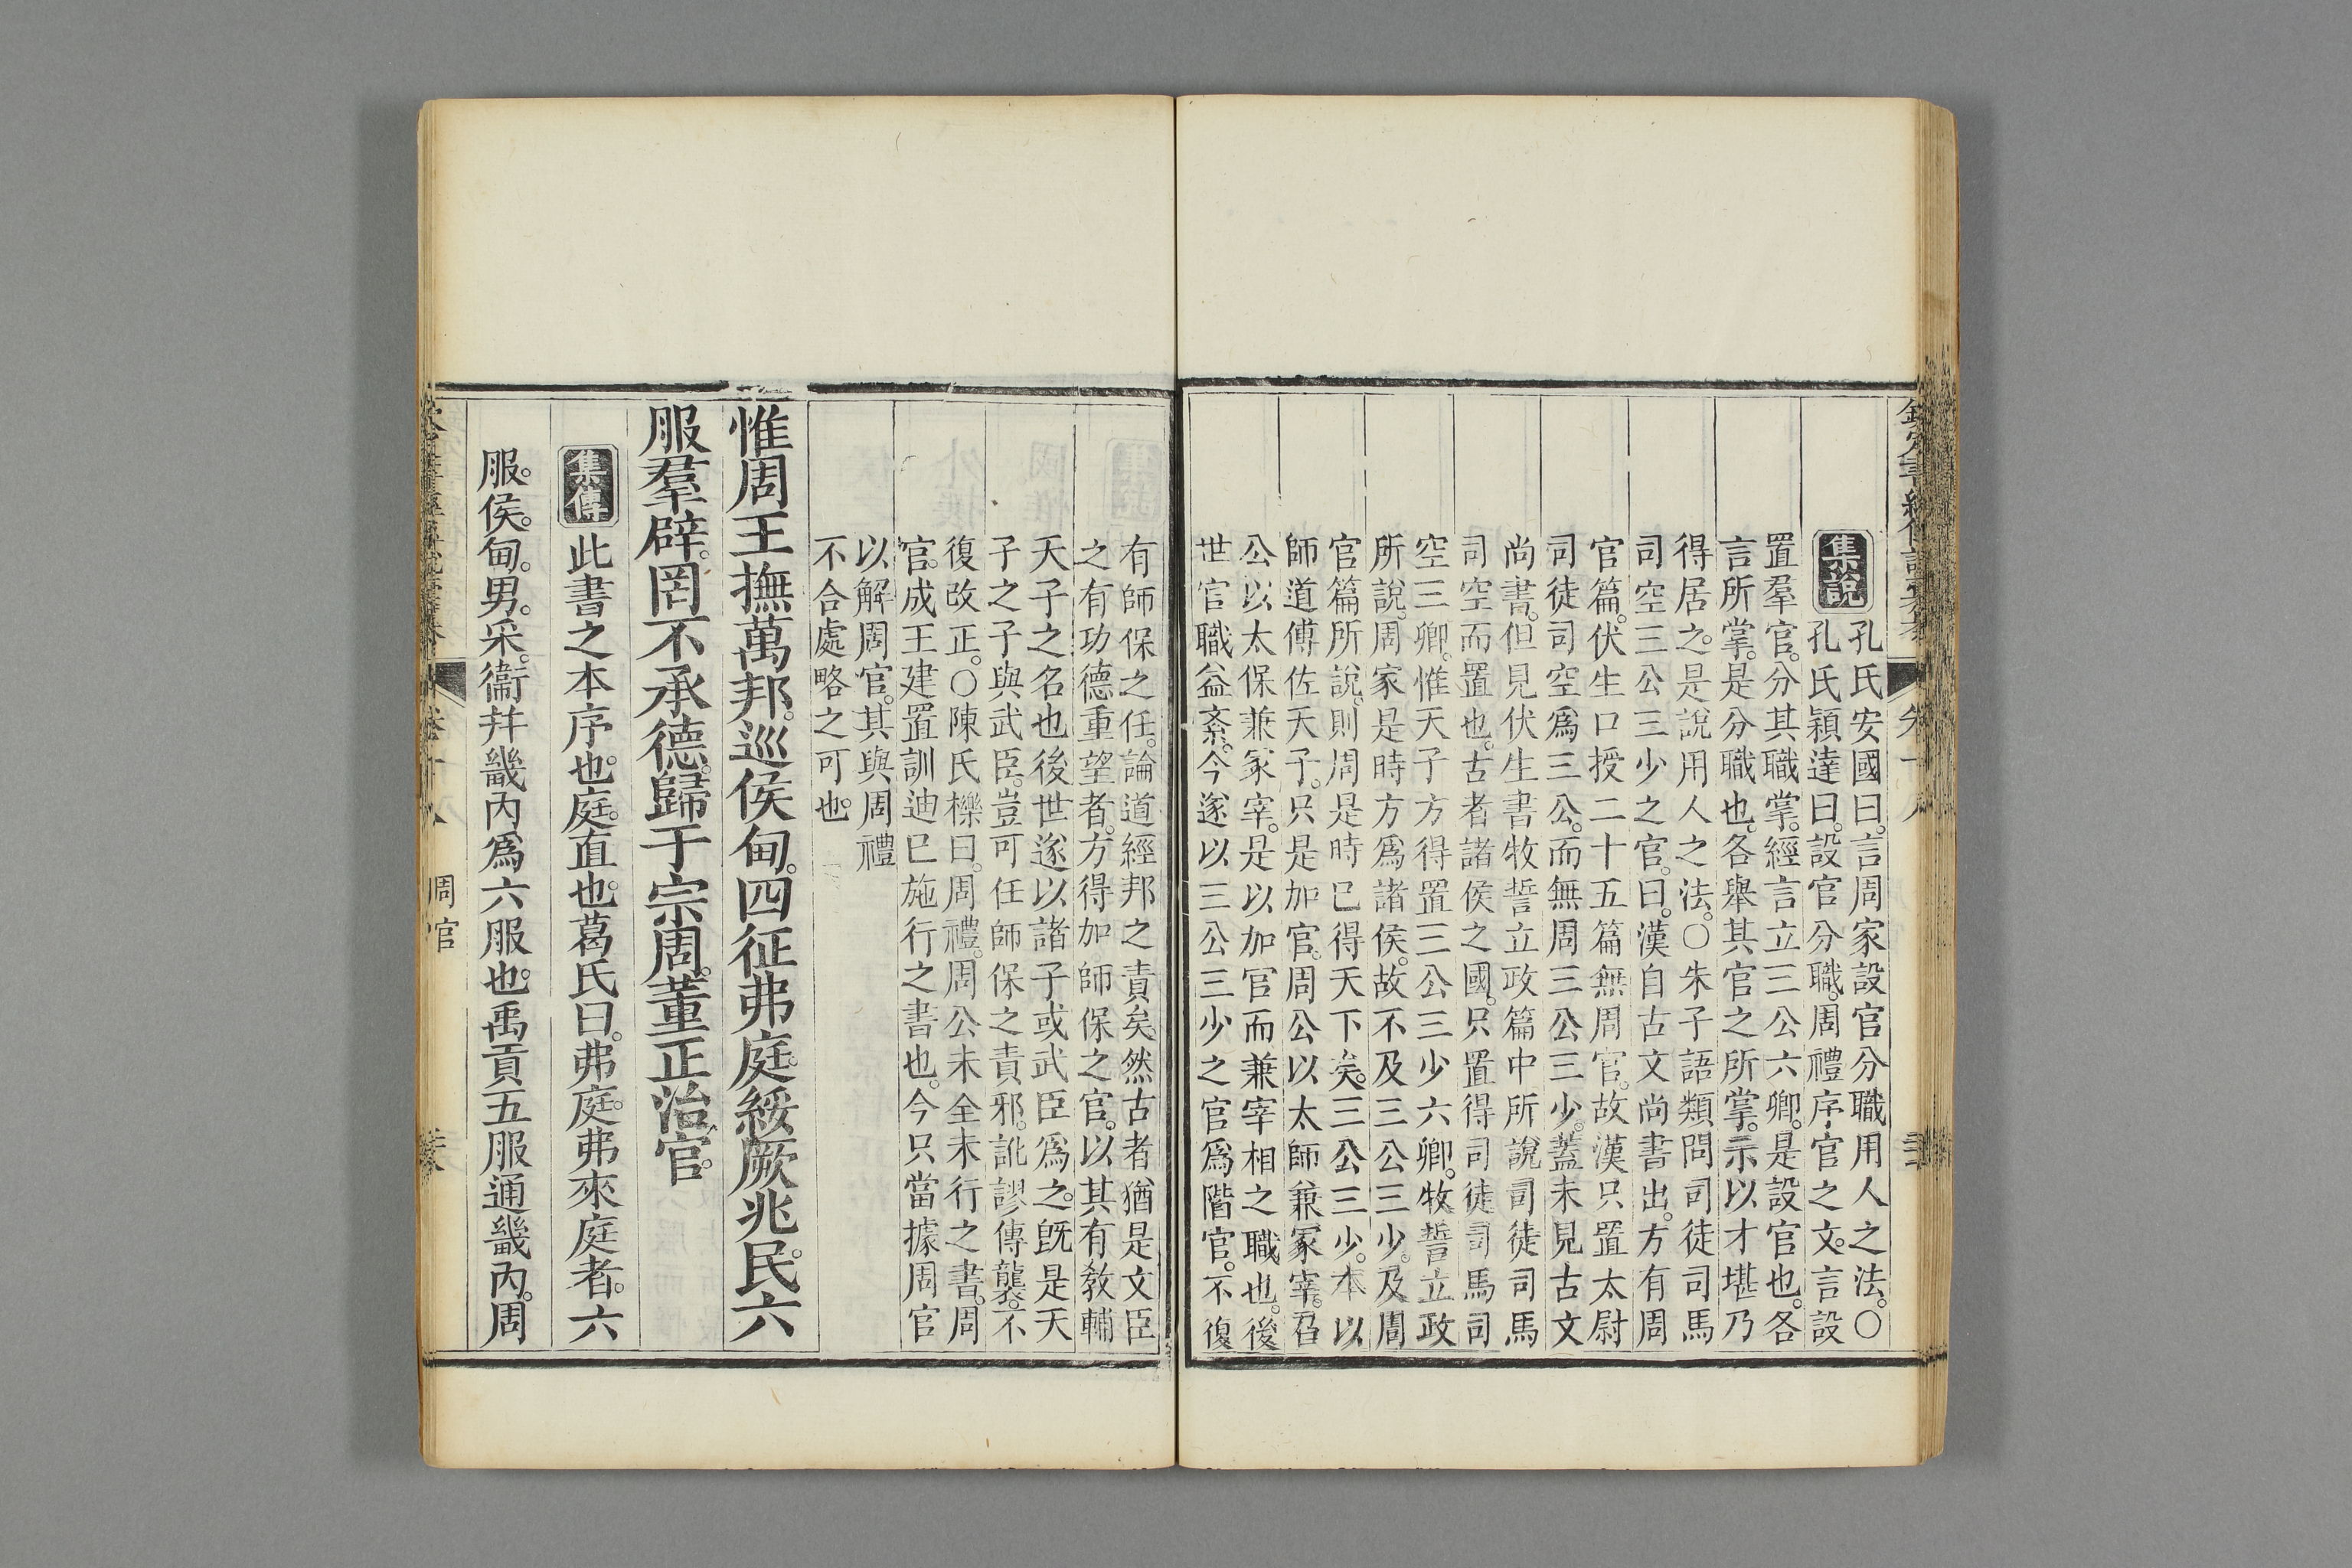 集說
孔氏安國曰。言周家設官分職用人之法。○
孔氏穎達曰。設官分職。周禮序官之文。言設
置羣官。分其職掌。經言立三公六卿。是設官也。各
言所掌。是分職也。各舉其官之所掌。示以才堪乃
得居之。是說用人之法。○朱子語類問司徒司馬
司空三公三少之官。曰。漢自古文尚書出。方有周
官篇。伏生口授二十五篇無周官。故漢只置太尉
司徒司空爲三公。而無周三公三少。蓋未見古文
尚書。但見伏生書牧誓立政篇中所說司徒司馬
司空而置也。古者諸侯之國。只置得司徒司馬司
空三卿。惟天子方得置三公三少六卿。牧誓立政
所說。周家是時方爲諸侯。故不及三公三少。及周
官篇所說。則周是時已得天下矣。三公三少。本以
師道傅佐天子。只是加官。周公以太師兼冢宰。召
公以太保兼冢宰。是以加官而兼宰相之職也。後
世官職益紊。今遂以三公三少之官爲階官。不復
有師保之任。論道經邦之責矣。然古者猶是文臣
之有功德重望者。方得加師保之官。以其有敎輔
天子之名也後世遂以諸子或武臣爲之。旣是天
子之子與武臣。豈可任師保之責邪。訛謬傳襲。不
復改正。○陳氏櫟曰。周禮。周公未全未行之書。周
官。成王建置訓迪已施行之書也。今只當據周官
以解周官。其與周禮
不合處略之可也。
惟周王撫萬邦。巡侯甸。四征弗庭。綏厥兆民。六
服羣辟。罔不承德。歸于宗周。董正治官。
集傳
此書之本序也。庭。直也。葛氏曰。弗庭。弗來庭者。六
服。侯。甸。男。采。衞并畿內爲六服也。禹貢五服通畿內。周
周官